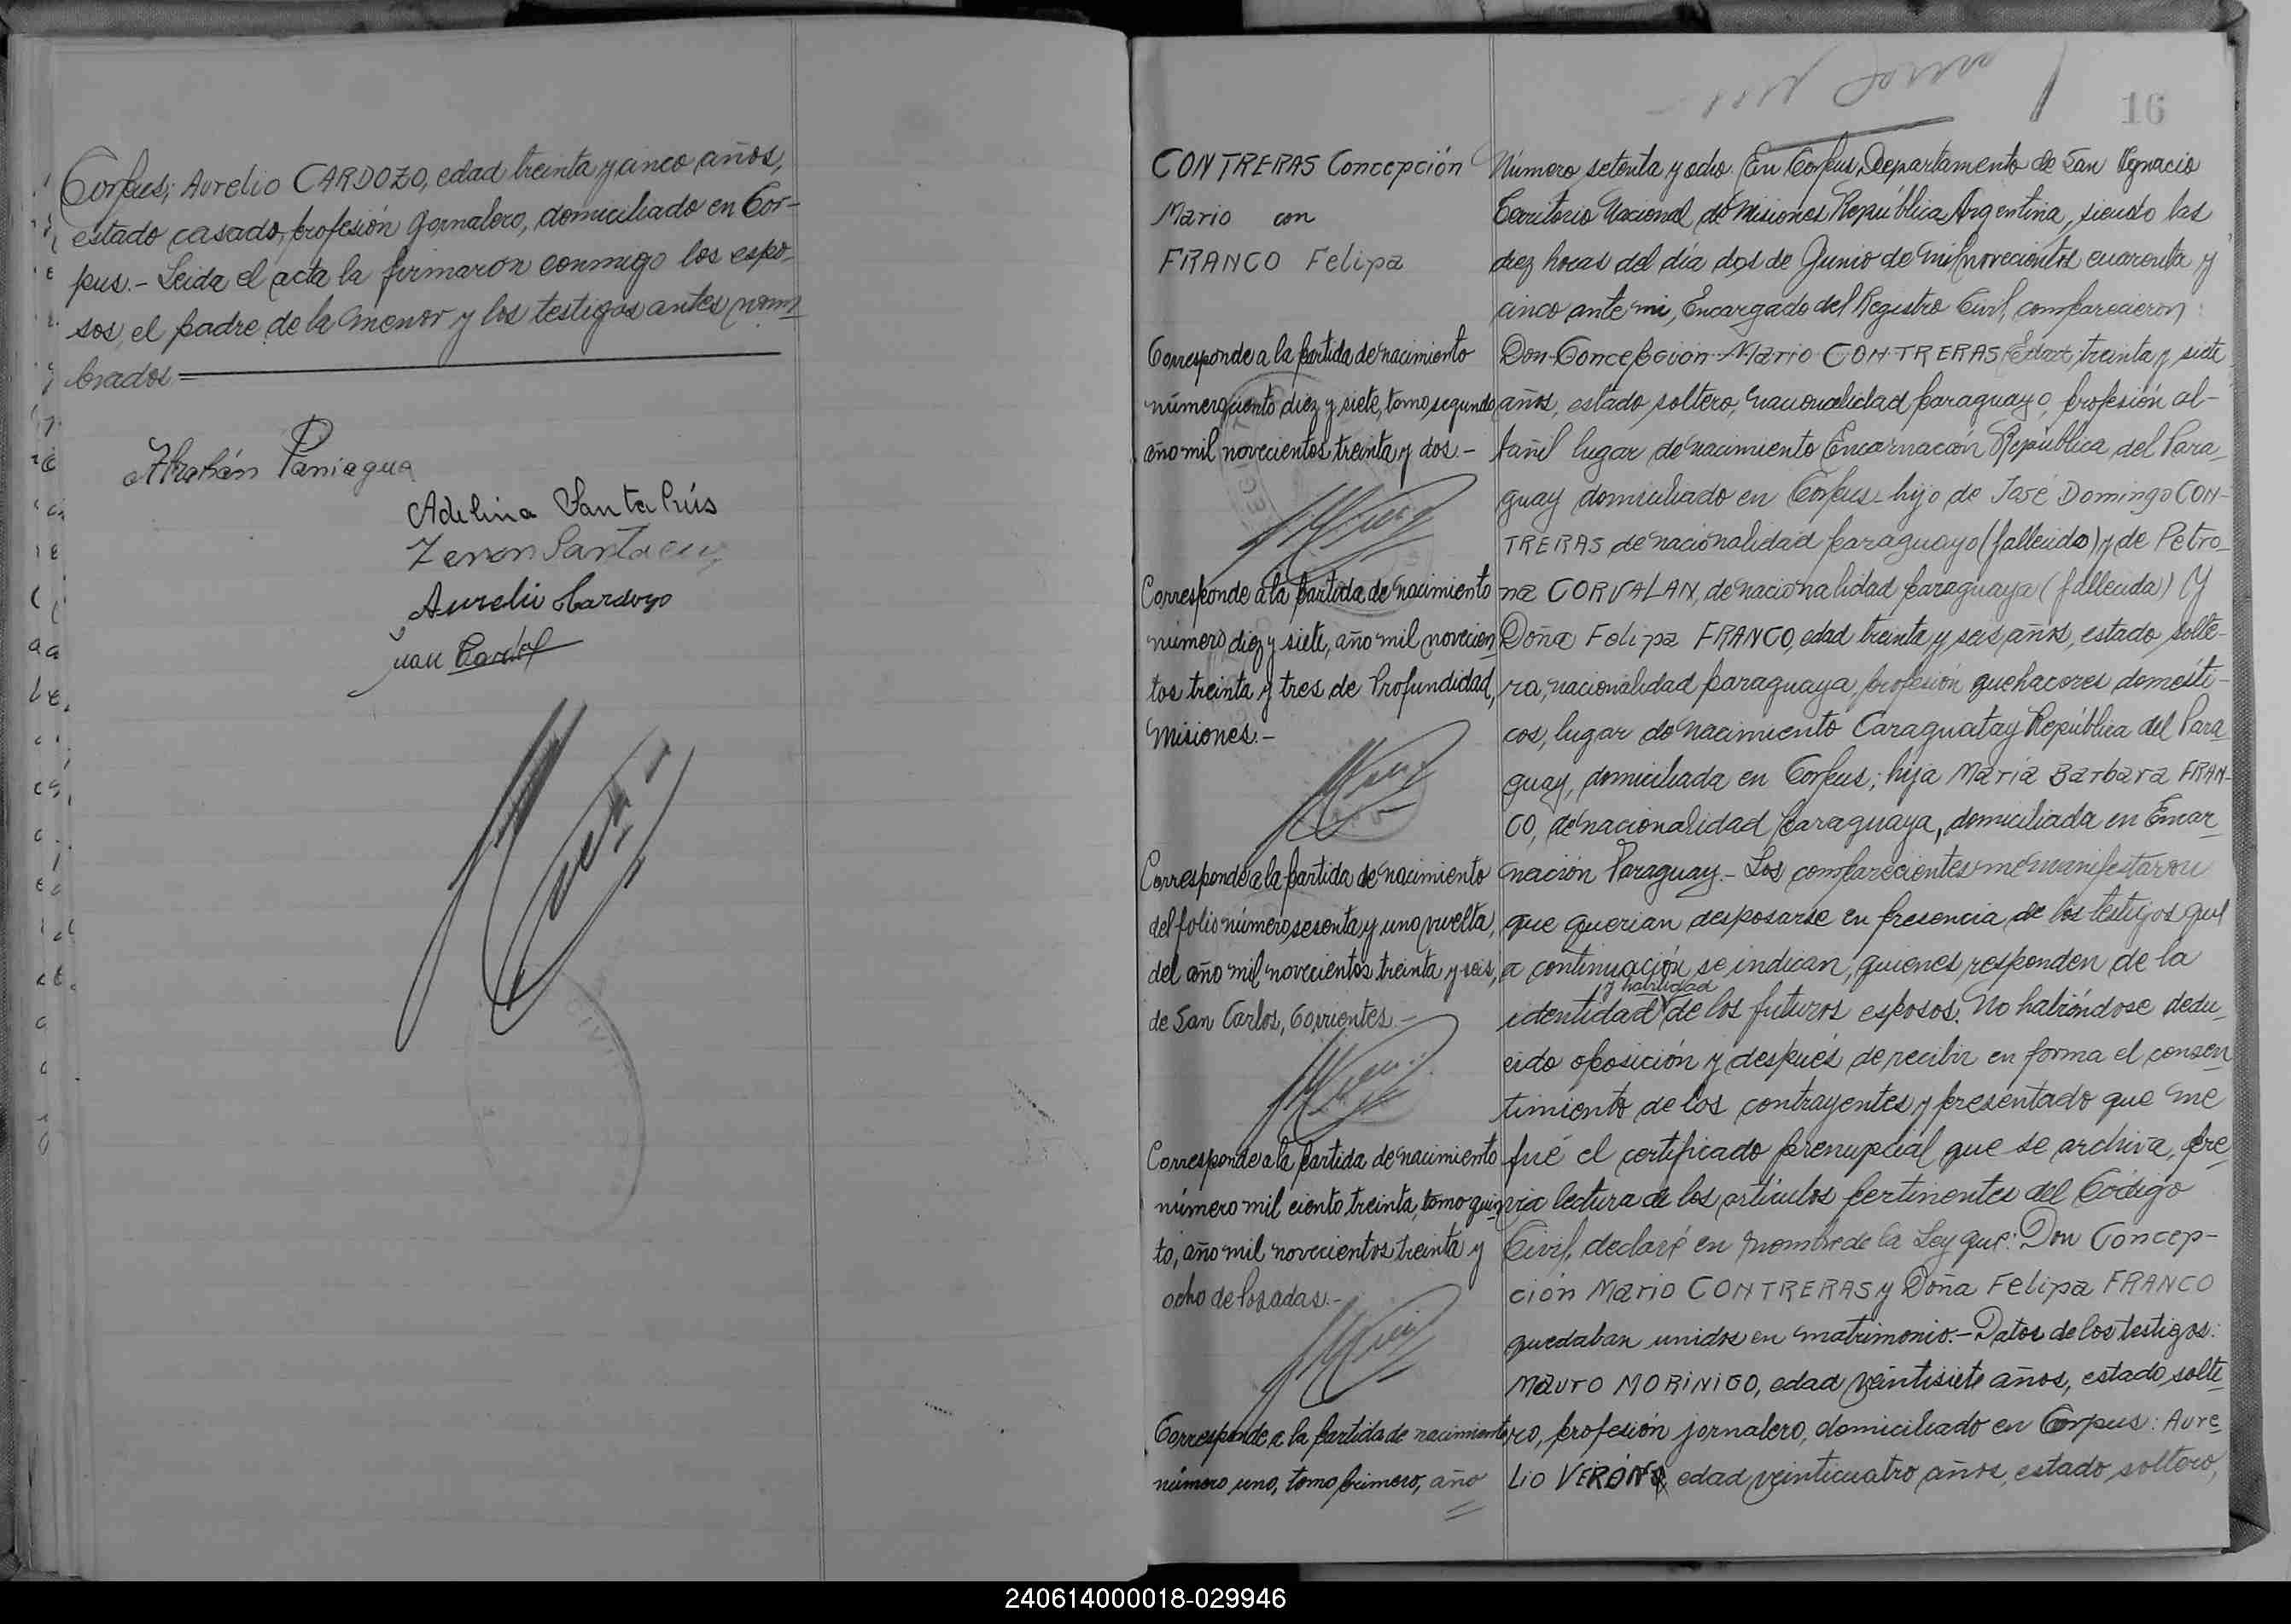 Corpus; Aurelio CARDOZO, edad treinta y cinco años,
estado casado, profesión jornalero, domiciliado en Cor-
pus.- Leida el acta la firmaron conmigo los espo-
sos, el padre de la menor y los testigos antes nom-
brados=
Abrahán Paniagua
Adelina Santa Crús
Zenon Santa cruz
Aurelio Cardozo
Juan
16
CONTRERAS Concepción
Mario con
FRANCO Felipa
Corresponde a la partida de nacimiento
número ciento diez y siete, tomo segundo
año mil novecientos treinta y dos.-
Corresponde a la partida de nacimiento
número diez y siete, año mil novecien
tos treinta y tres de Profundidad,
Misiones.-
Corresponde a la partida de nacimiento
del folio número sesenta y uno vuelta,
del año mil novecientos treinta y seis,
de San Carlos, Corrientes.-
Corresponde a la partida de nacimiento
número mil ciento treinta, tomo quin-
to, año mil novecientos treinta y
ocho de Posadas.-
Corresponde a la partida de nacimiento
número uno, tomo primero, año
Número setenta y ocho. En Corpus, Departamento de San Ygnacio
Territorio Nacional de Misiones República Argentina, siendo las
diez horas del día dos de Junio de mil novecientos cuarenta y
cinco ante mi, Encargado del Registro Civil, comparecieron:
Don Concepción Mario CONTRERAS Edad treinta y siete
años, estado soltero, nacionalidad paraguayo, profesión al-
bañil lugar de nacimiento Encarnación República del Para-
guay domiciliado en Corpus hijo de José Domingo CON-
TRERAS de nacionalidad paraguayo (fallecido) y de Petro-
na CORVALAN, de nacionalidad paraguaya (fallecida) Y
Doña Felipa FRANCO, edad treinta y seis años, estado solte-
ra, nacionalidad paraguaya, profesión quehaceres domésti-
cos, lugar de nacimiento Caraguatay República del Para-
guay, domiciliada en Corpus; hija María Barbara FRAN-
CO, de nacionalidad paraguaya, domiciliada en Encar-
nación Paraguay.- Los comparecientes me manifestaron
que querian desposarse en presencia de los testigos que
a continuación se indican, quienes responden de la
y habilidad
identidad de los futuros esposos. No habiéndose dedu-
cido oposición y después de recibir en forma el consen
timiento de los contrayentes y presentado que me
fué el certificado prenupcial que se archiva, pre-
via lectura de los artículos pertinentes del Código
Civil, declaré en nombre de la Ley que: Don Concep-
ción Mario CONTRERAS y Doña Felipa FRANCO
quedaban unidos en matrimonio.- Datos de los testigos:
Mauro MORINIGO, edad veintisiete años, estado solte-
ro, profesión jornalero, domiciliado en Corpus: Aure-
lio VERÓN, edad veinticuatro años, estado soltero,
240614000018-029946